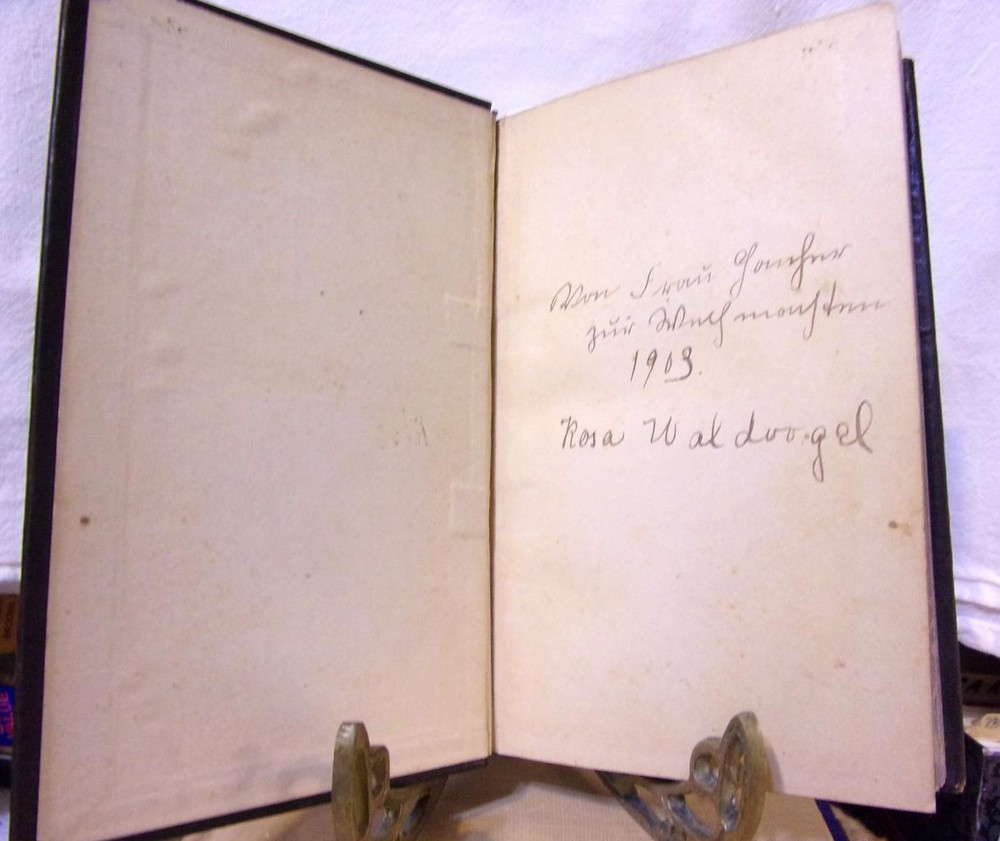 Von Frau
zur Weihnachten
1903.
Rosa Waldvogel